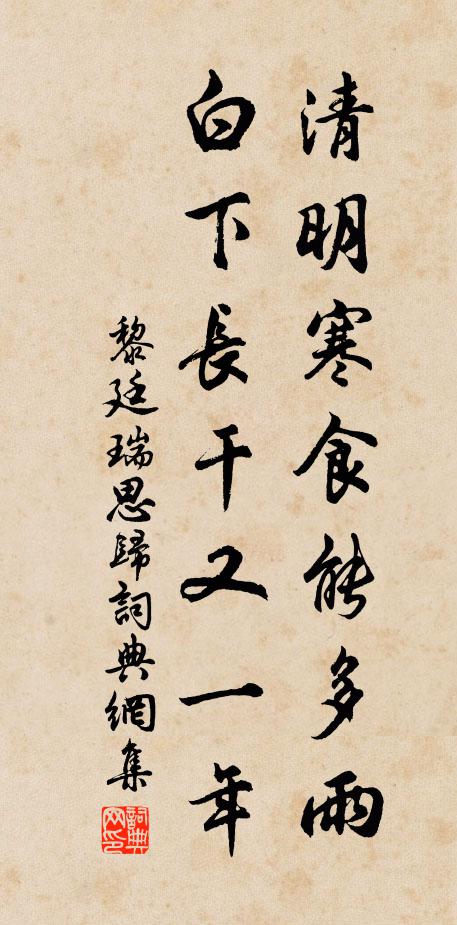 清明寒食能多雨
白下長干又一年
黎廷瑞思歸詞典網集
詞典網印